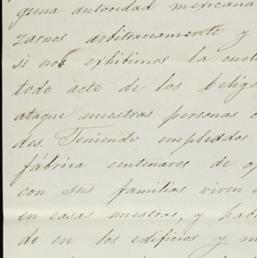 guna autoridad mexicana
zarnos arbitrariamente y
si nos exhibimos la cuot
todo acto de los belige
ataque nuestras personas o
des. Teniendo empleados
fábrica centenares de op
con sus familias viven e
en casas nuestras, y hab
do en los edificios y m